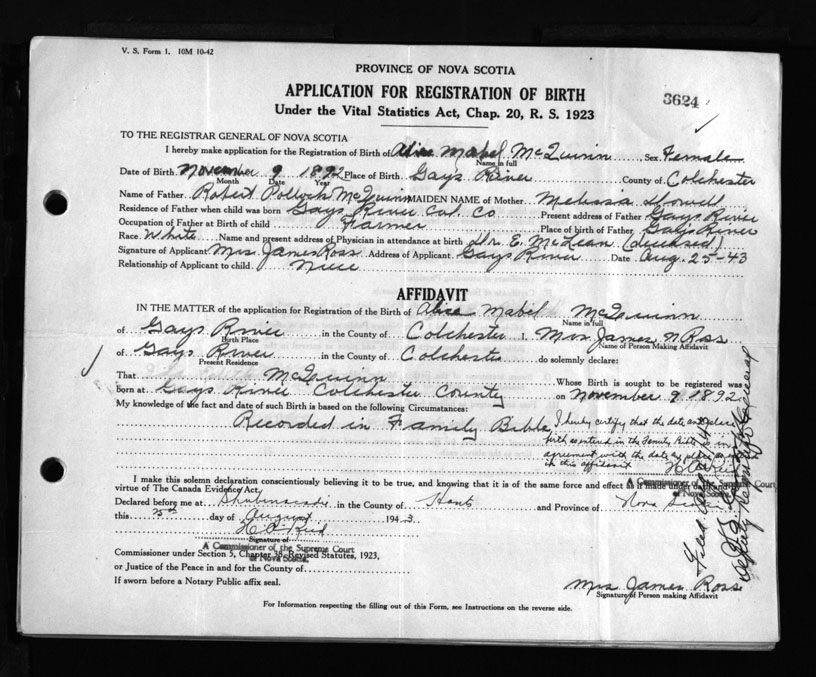 V. S. Form 1. 10M 10-42
PROVINCE OF NOVA SCOTIA
APPLICATION FOR REGISTRATION OF BIRTH
3624
Under the Vital Statistics Act, Chap. 20, R. S. 1923
TO THE REGISTRAR GENERAL OF NOVA SCOTIA
I hereby make application for the Registration of Birth of Alice Mabel McQuinn Sex Female
Name in full
Date of Birth November 9 1892 Place of Birth Gays River County of Colchester
Month Date Year
Name of Father Robert Pollock McQuinn MAIDEN NAME of Mother Melissa
Residence of Father when child was born Gays River Col. Co Present address of Father Gays River
Occupation of Father at Birth of child Farmer Place of birth of Father Gays River
Race White Name and present address of Physician in attendance at birth Dr. E. McLean (deceased)
Signature of Applicant Mrs James Ross Address of Applicant Gays River Date Aug. 25-43
Relationship of Applicant to child Niece
AFFIDAVIT
IN THE MATTER of the application for Registration of the Birth of Alice Mabel McQuinn
Name in full
of Gays River in the County of Colchester I, Mrs James N Ross
Birth Place Name of Person Making Affidavit
of Gays River in the County of Colchester do solemnly declare:
Present Residence
That McQuinn Whose Birth is sought to be registered was
born at Gays River Colchester County on November 9 1892
My knowledge of the fact and date of such Birth is based on the following Circumstances:
Recorded in Family Bible
I hereby certify that the date and place
birth as entered in the Family Bible is in
agreement with the date as
in this affidavit
A Commissioner of the Supreme Court
of Nova Scotia
I make this solemn declaration conscientiously believing it to be true, and knowing that it is of the same force and effect as if made under oath and
virtue of The Canada Evidence Act,
Declared before me at Shubenacadie in the County of Hants and Province of Nova Scotia
this 25th day of August 1943.
Signature of
A Commissioner of the Supreme Court
of Nova Scotia.
Commissioner under Section 5, Chapter 38, Revised Statutes, 1923,
or Justice of the Peace in and for the County of
If sworn before a Notary Public affix seal.
Mrs James Ross
Signature of Person making Affidavit
For Information respecting the filling out of this Form, see Instructions on the reverse side.
Filed
Deputy Registrar General